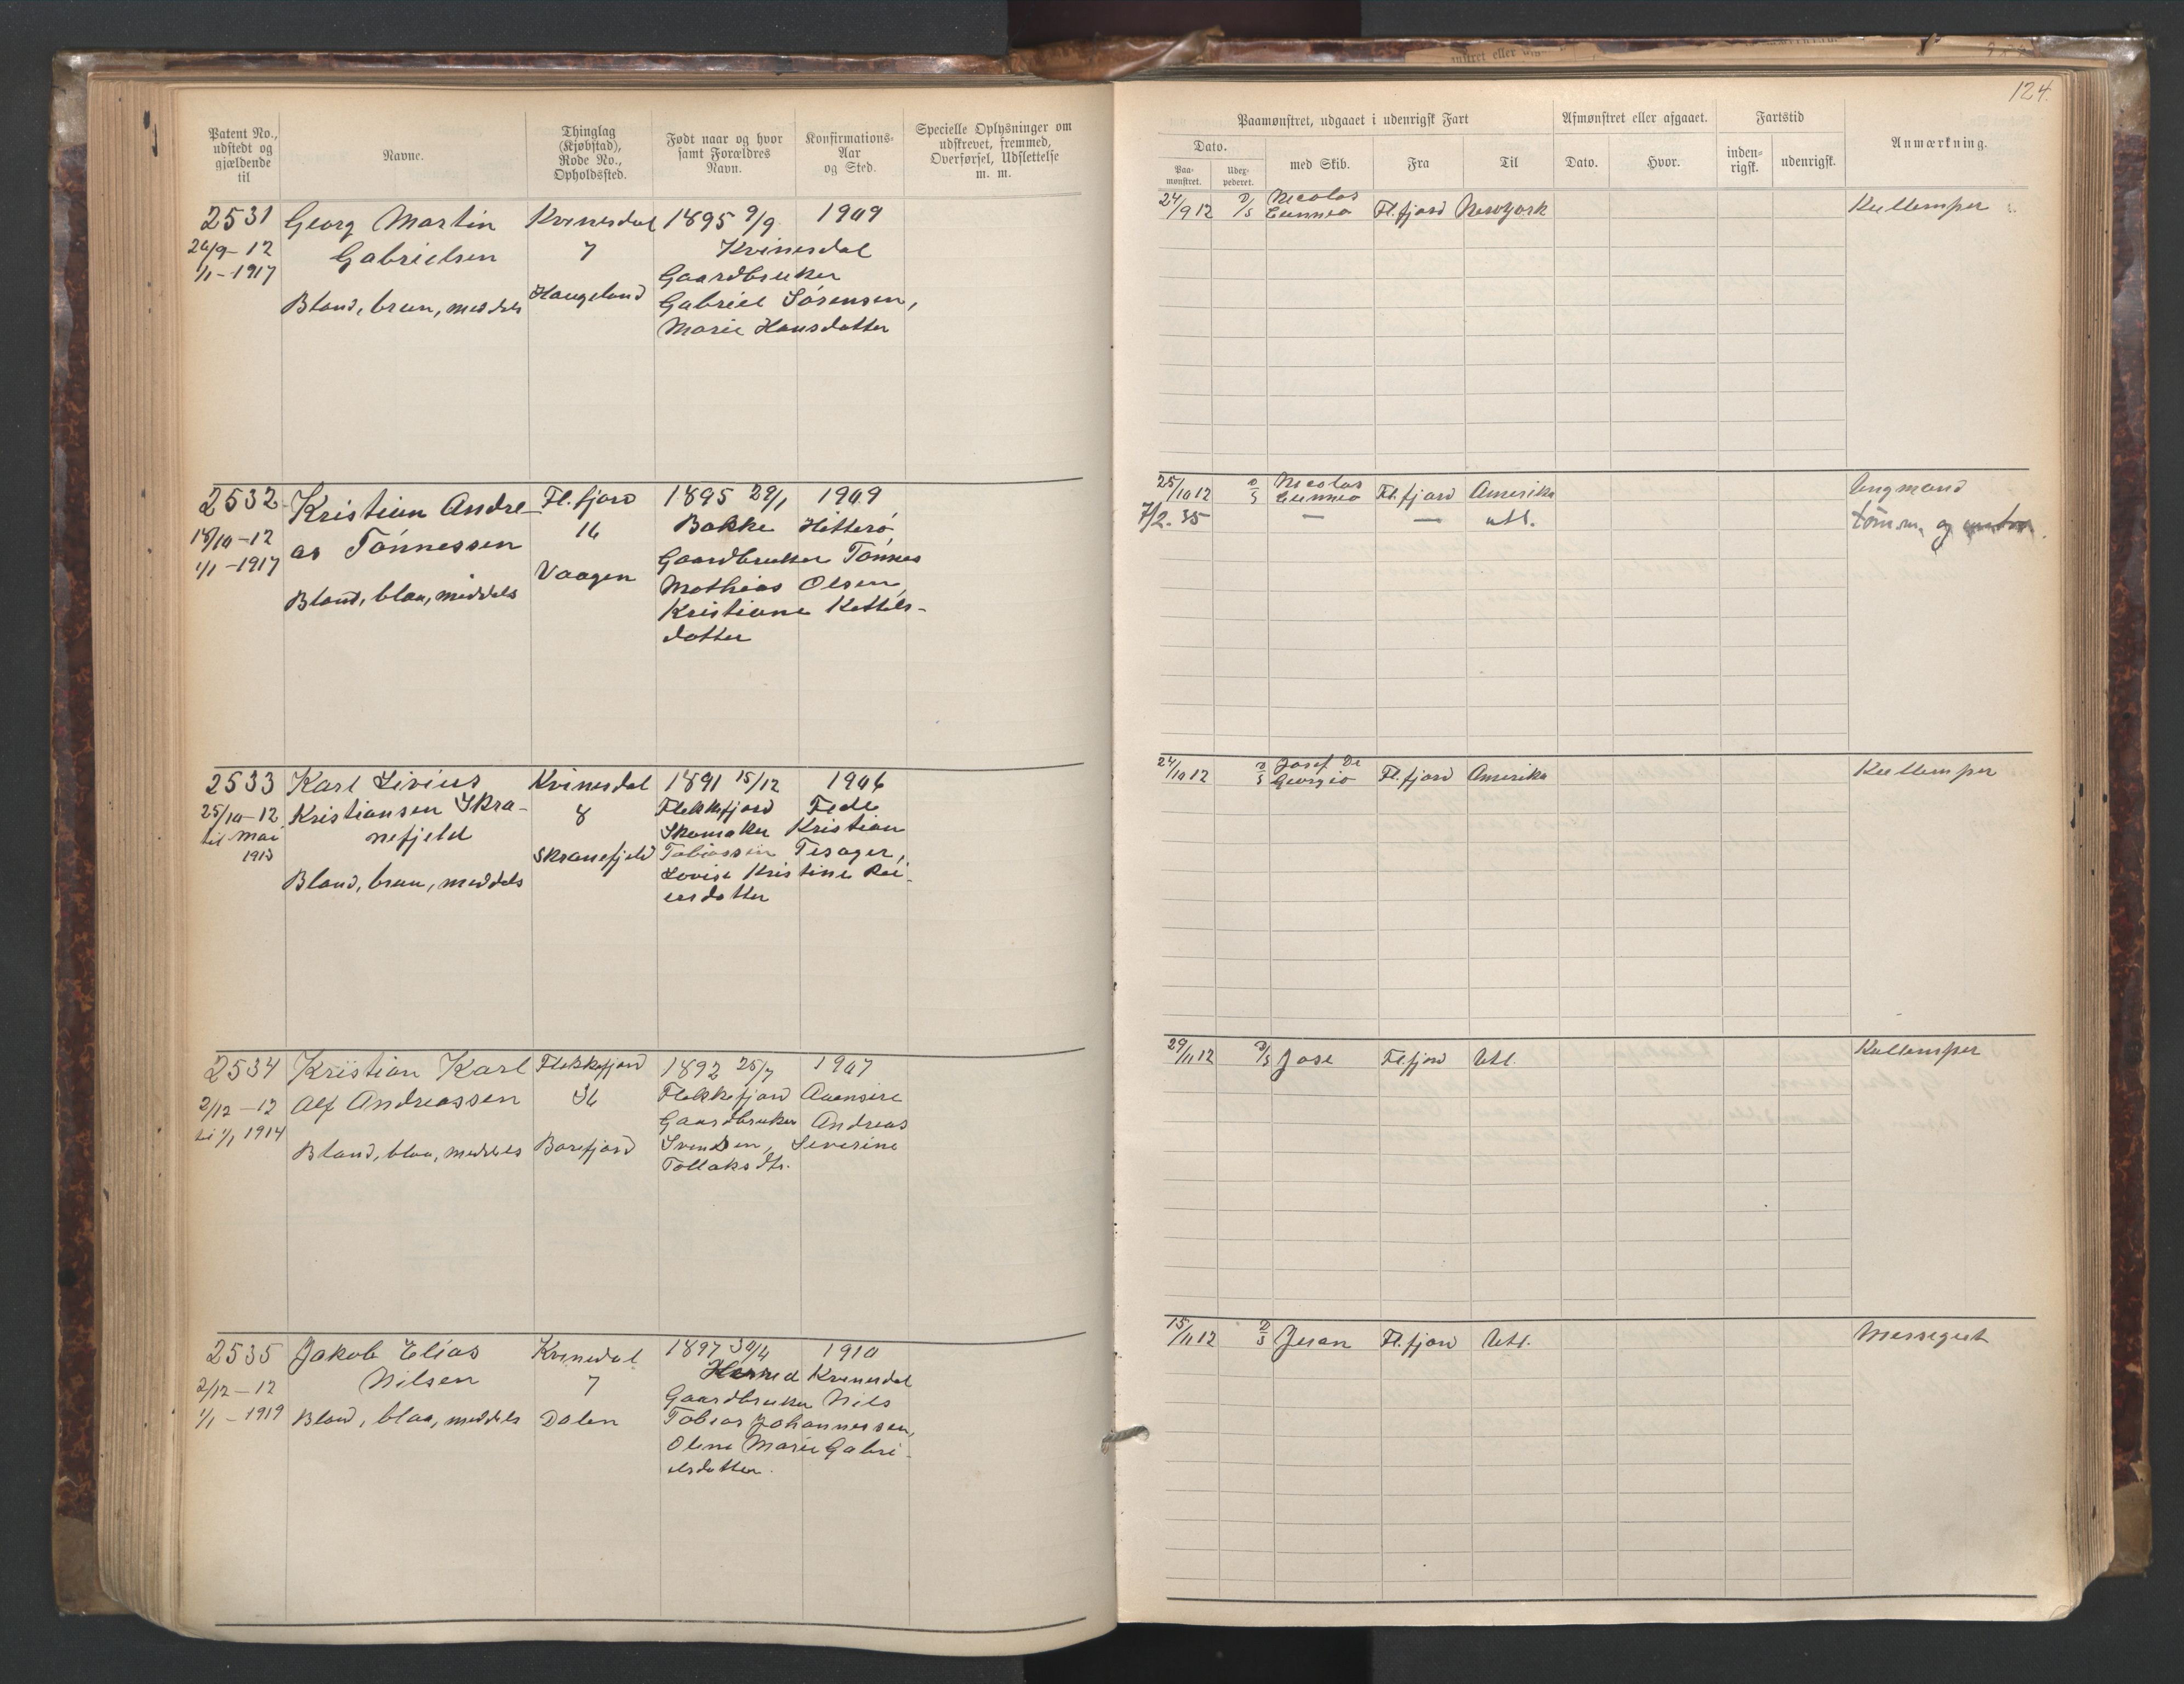 124.
Patent No., udstedt og gjældende til
Navne.
Thinglag (Kjøbstad), Rode No., Opholdssted.
Født naar og hvor samt Forældres Navn.
Konfirmations-Aar og Sted.
Specielle Oplysninger om udskrevet, fremmed, Overførsel, Udslettelse m. m.
Paamønstret, udgaaet i udenrigsk Fart
Dato.
Paa-mønstret.
Udex-pederet.
med Skib.
Fra
Til
Afmønstret eller afgaaet.
Dato.
Hvor.
Fartstid
inden-rigsk.
udenrigsk.
Anmærkning.
2531
24/9-12
1/1-1917
Georg Martin
Gabrielsen
Bland, brun, meddels
Kvinesdal
7
Haugeland
1895 9/9 1909
Kvinesdal
Gaardbruker
Gabriel Sørensen,
Marie Hansdatter
24/9 12 D/S Nicolos Cuneo Fl.fjord Newyork
Kullemper
2532
18/10-12
1/1-1917
Kristian Andre-
as Tönnessen
Bland, blaa, middels
Fl.fjord
16
Vaagen
1895 29/1 1909
Bakke Hitterø
Gaardbruker Tønnes
Mathias Olsen,
Kristiane Kettels-
datter
25/10 12 D/S Nicolos Cuneo Fl.fjord Amerika
Ungmand
7/2.35 — — utl.
töm.m. og
2533
25/10-12
til mai
1913
Karl Livius
Kristiansen Skra-
nefjeld
Bland, brun, meddels
Kvinesdal
8
Skranefjeld
1891 15/12 1906
Flekkefjord Fede
Skomaker Kristian
Tobiassen Tesager,
Lovise Kristine Rei-
ersdatter
24/10 12 D/S Josef De Georgio Fl.fjord Amerika
Kullemper
2534
2/12-12
til 1/1 1914
Kristian Karl
Alf Andreassen
Bland, blaa, meddels
Flekkefjord
36
Borefjord
1892 25/7 1907
Flekkefjord Avensire
Gaardbruker Andreas
Svendsen, Severine
Tollaksdtr.
29/11 12 D/S Jose Fl.fjord Utl.
Kullemper
2535
2/12-12
1/1-1919
Jakob Elias
Nilsen
Bland, blaa, meddels
Kvinesdal
7
Dalen
1897 30/4 1910
Herred Kvinesdal
Gaardbruker Nils
Tobias Johannessen,
Oline Marie Gabri-
elsdatter.
15/11 12 D/S Jesan Fl.fjord Utl.
Messegut